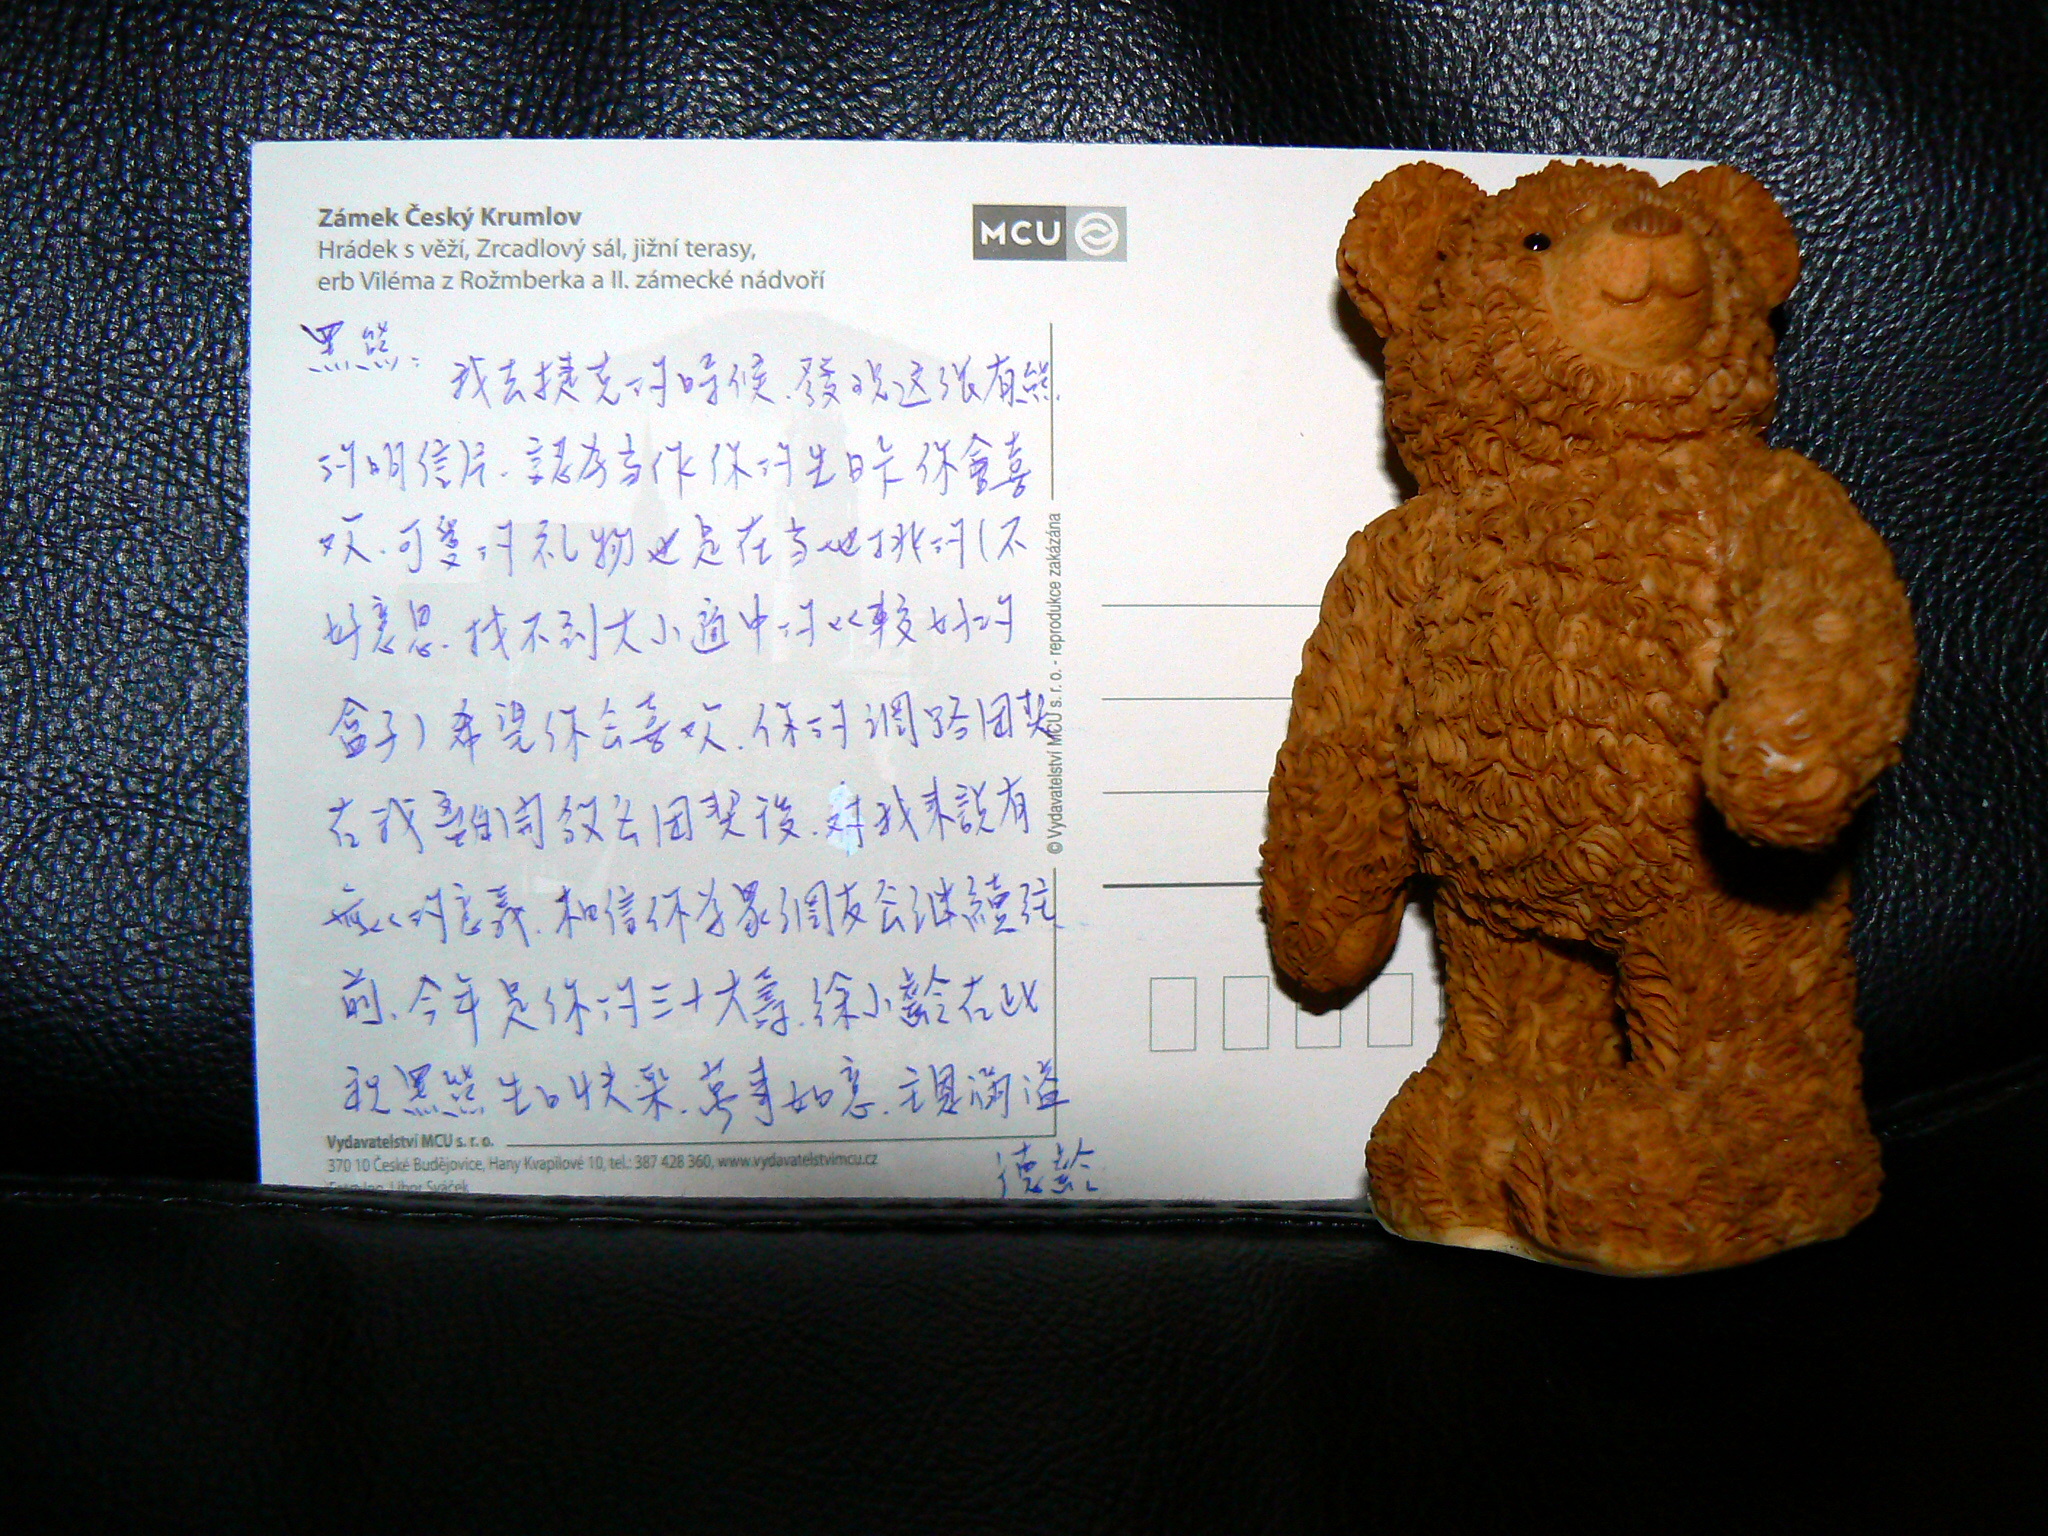 Zámek Český Krumlov
Hrádek s věží, Zrcadlový sál, jižní terasy,
erb Viléma z Rožmberka a II. zámecké nádvoří
MCU
黑熊:
我去捷克的時候.發現这张有熊
的明信片.認為当作你的生日卡你會喜
欢.可愛的礼物也是在当地挑的(不
好意思.找不到大小適中的比較好的
盒子)希望你会喜欢.你的網路团契
在我離開後 团契後.對我来說有
的意義.相信你 網友会继續往
前.今年是你的三十大壽.徐小齡在此
祝黑熊生日快樂.萬事如意.主恩滿溢
德齡
© Vydavatelství MCU s. r. o. - reprodukce zakázána
Vydavatelství MCU s. r. o.
370 10 České Budějovice, Hany Kvapilové 10, tel.: 387 428 360, www.vydavatelstvimcu.cz
Libor Sváček